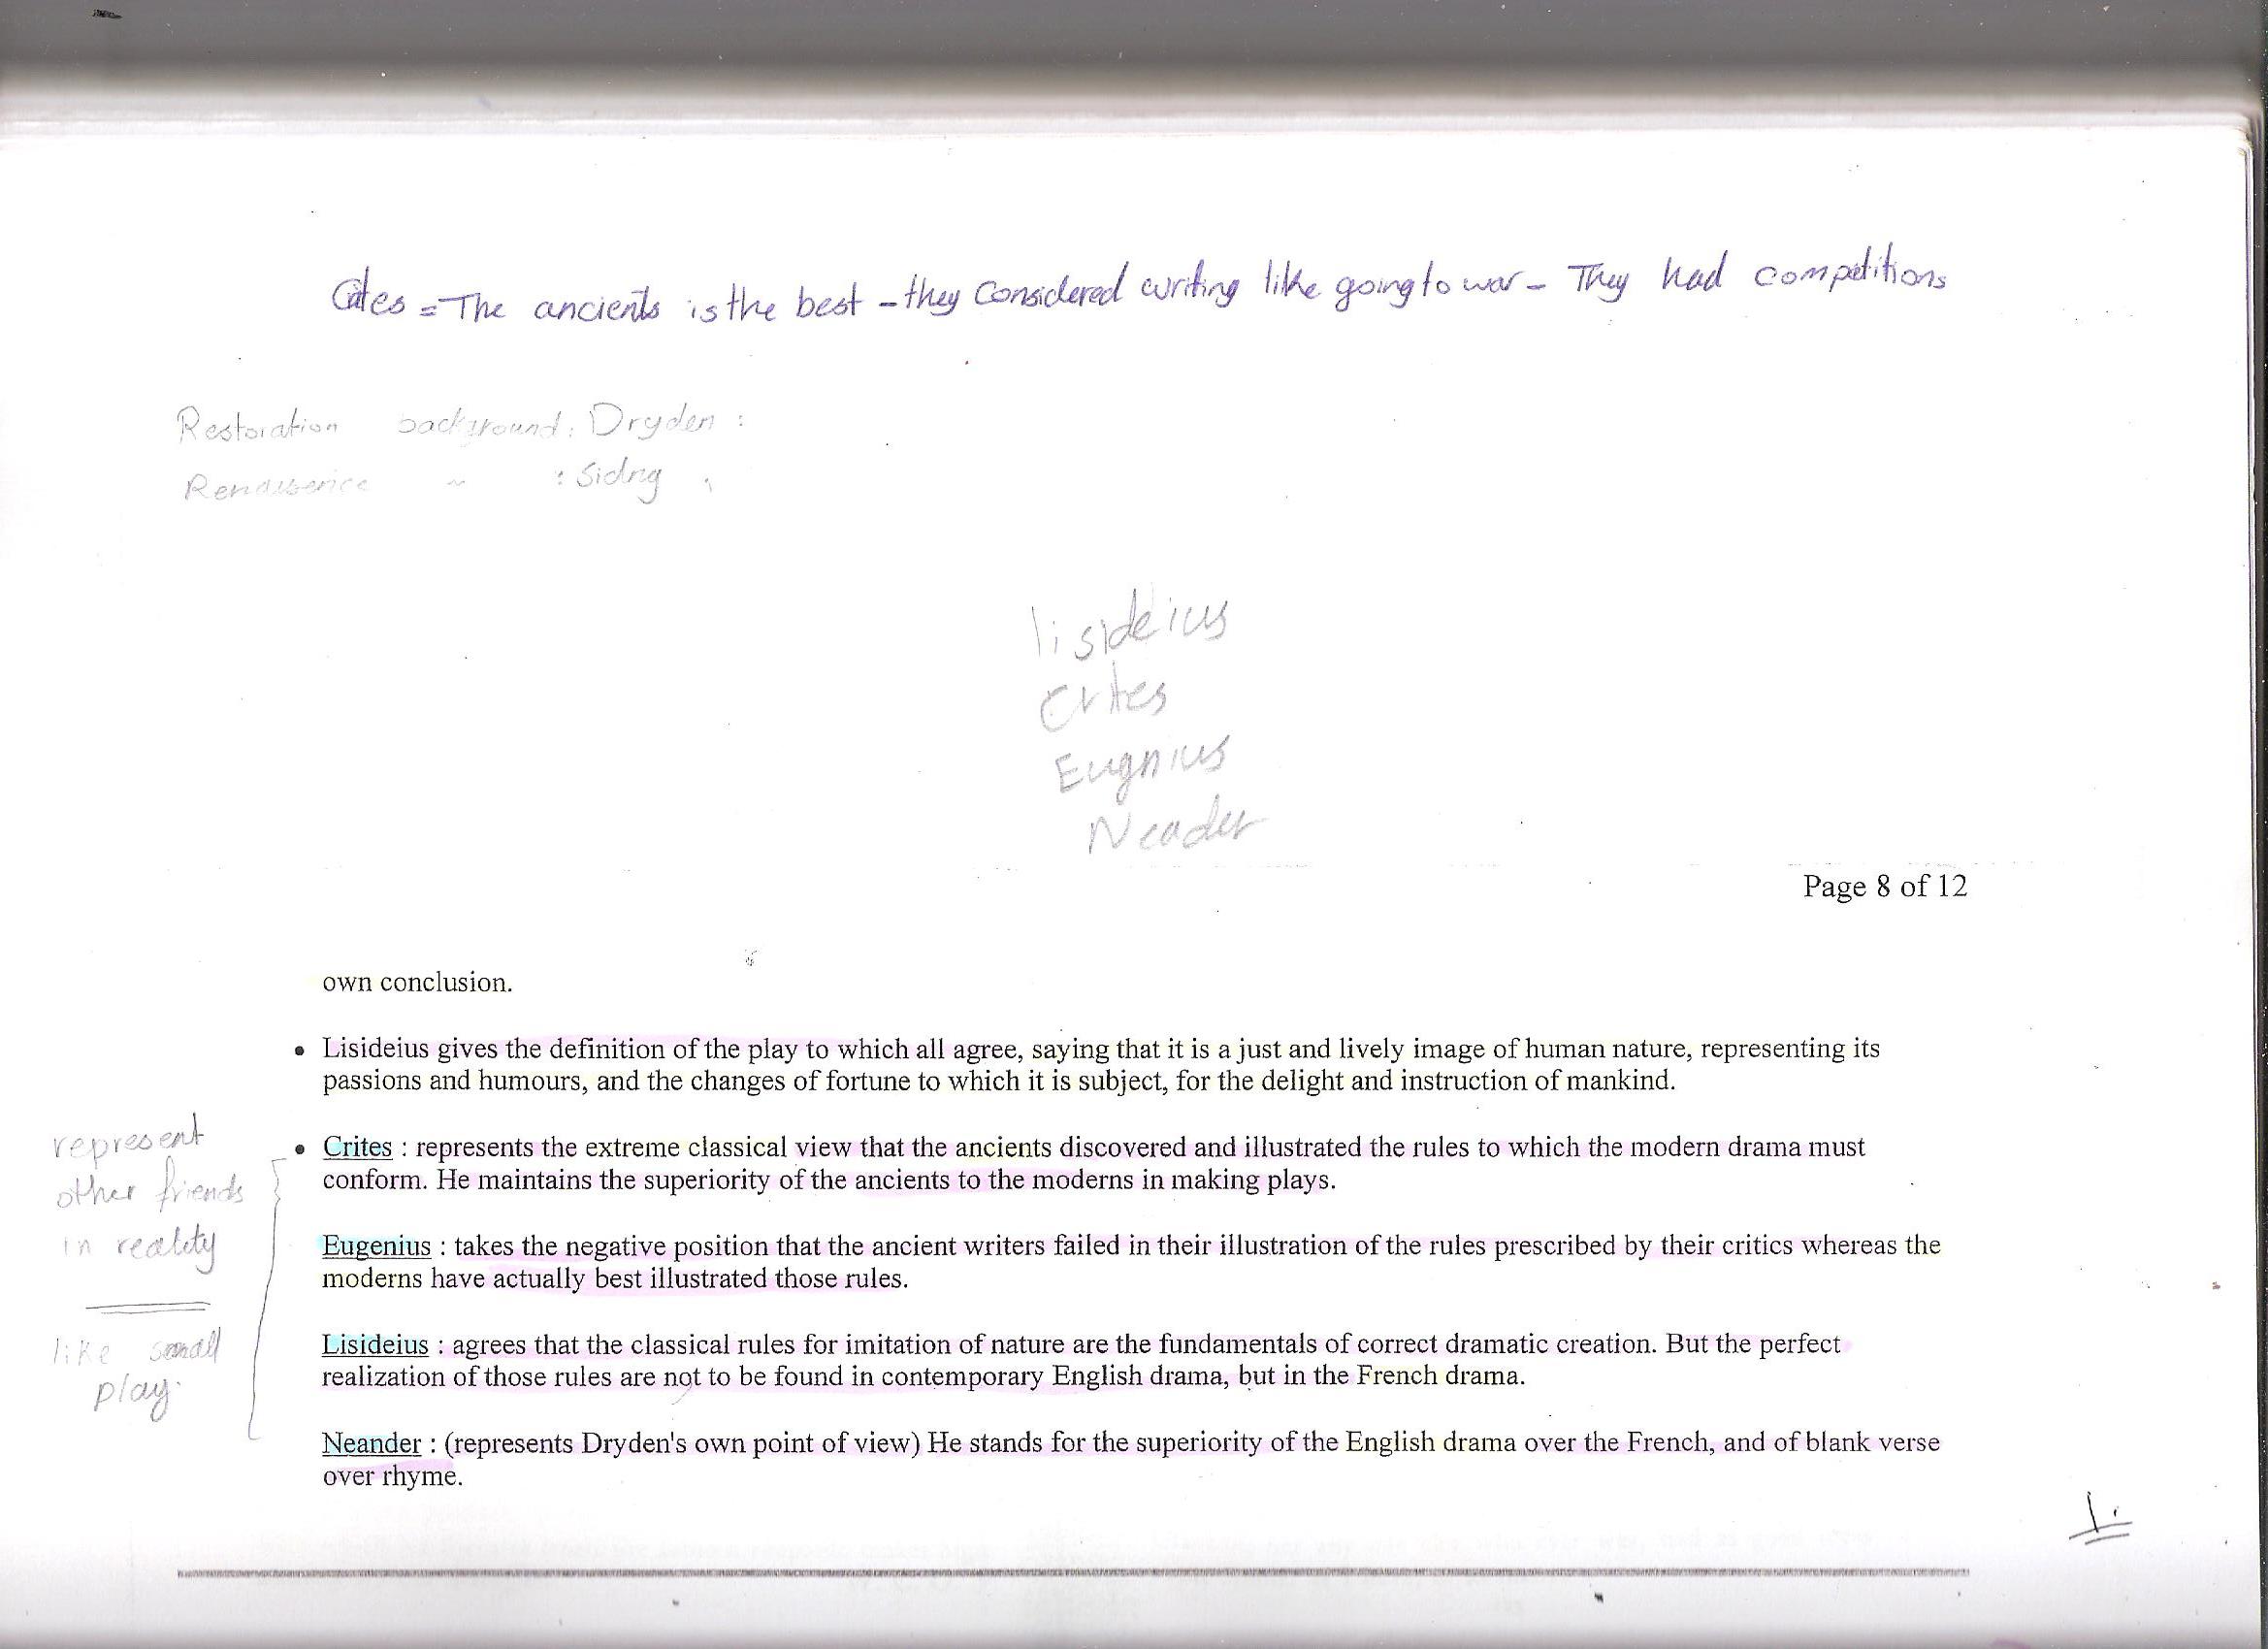 Crites = The ancients is the best – they Considered writing like going to war – They had competitions
Restoration background : Dryden :
: Sidny
lisideius
Crites
Eugnius
Neader
Page 8 of 12
own conclusion.
• Lisideius gives the definition of the play to which all agree, saying that it is a just and lively image of human nature, representing its
passions and humours, and the changes of fortune to which it is subject, for the delight and instruction of mankind.
represent
other friends
in reality
like small
play.
• Crites : represents the extreme classical view that the ancients discovered and illustrated the rules to which the modern drama must
conform. He maintains the superiority of the ancients to the moderns in making plays.
Eugenius : takes the negative position that the ancient writers failed in their illustration of the rules prescribed by their critics whereas the
moderns have actually best illustrated those rules.
Lisideius : agrees that the classical rules for imitation of nature are the fundamentals of correct dramatic creation. But the perfect
realization of those rules are not to be found in contemporary English drama, but in the French drama.
Neander : (represents Dryden's own point of view) He stands for the superiority of the English drama over the French, and of blank verse
over rhyme.